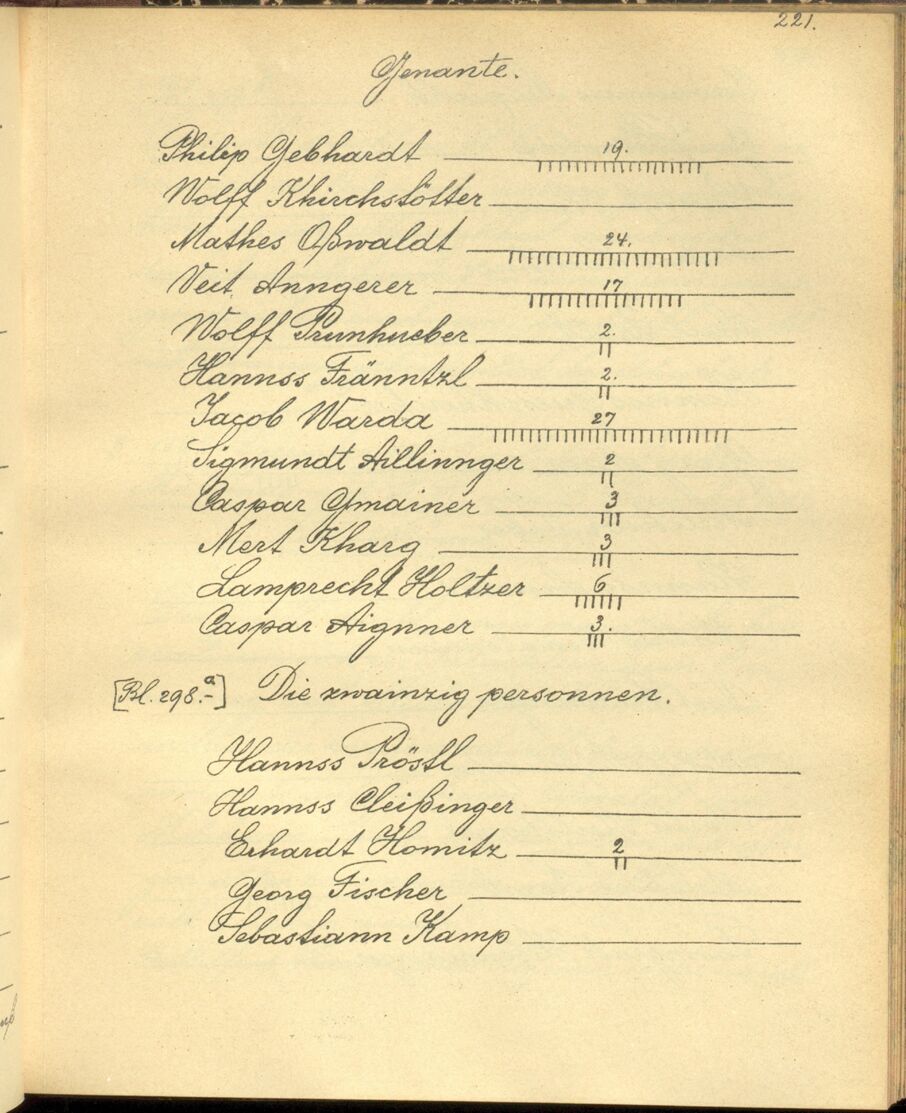 221.
Genante.
Philip Gebhardt 19.
Wolff Khirchstötter
Mathes Oßwaldt 24.
Veit Anngerer 17
Wolff Prunhueber 2.
Hannss Fränntzl 2.
Jacob Warda 27
Sigmundt Aillinnger 2
Caspar Gmainer 3
Mert Kharg 3
Lamprecht Holtzer 6
Caspar Aignner 3.
[Bl. 298.a] Die zwainzig personnen.
Hannss Pröstl
Hannss Cleißinger
Erhardt Homitz 2
Georg Fischer
Sebastiann Kamp